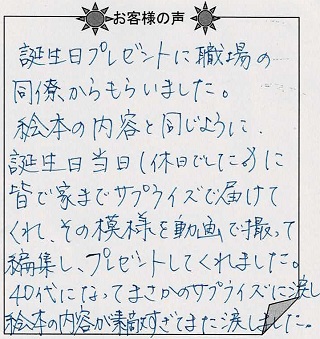 お客様の声
誕生日プレゼントに職場の
同僚からもらいました。
絵本の内容と同じように、
誕生日当日(休日でしたが)に
皆で家までサプライズで届けて
くれ、その模様を動画で撮って
編集し、プレゼントしてくれました。
40代になってまさかのサプライズに涙し
絵本の内容が素敵すぎてまた涙しました。